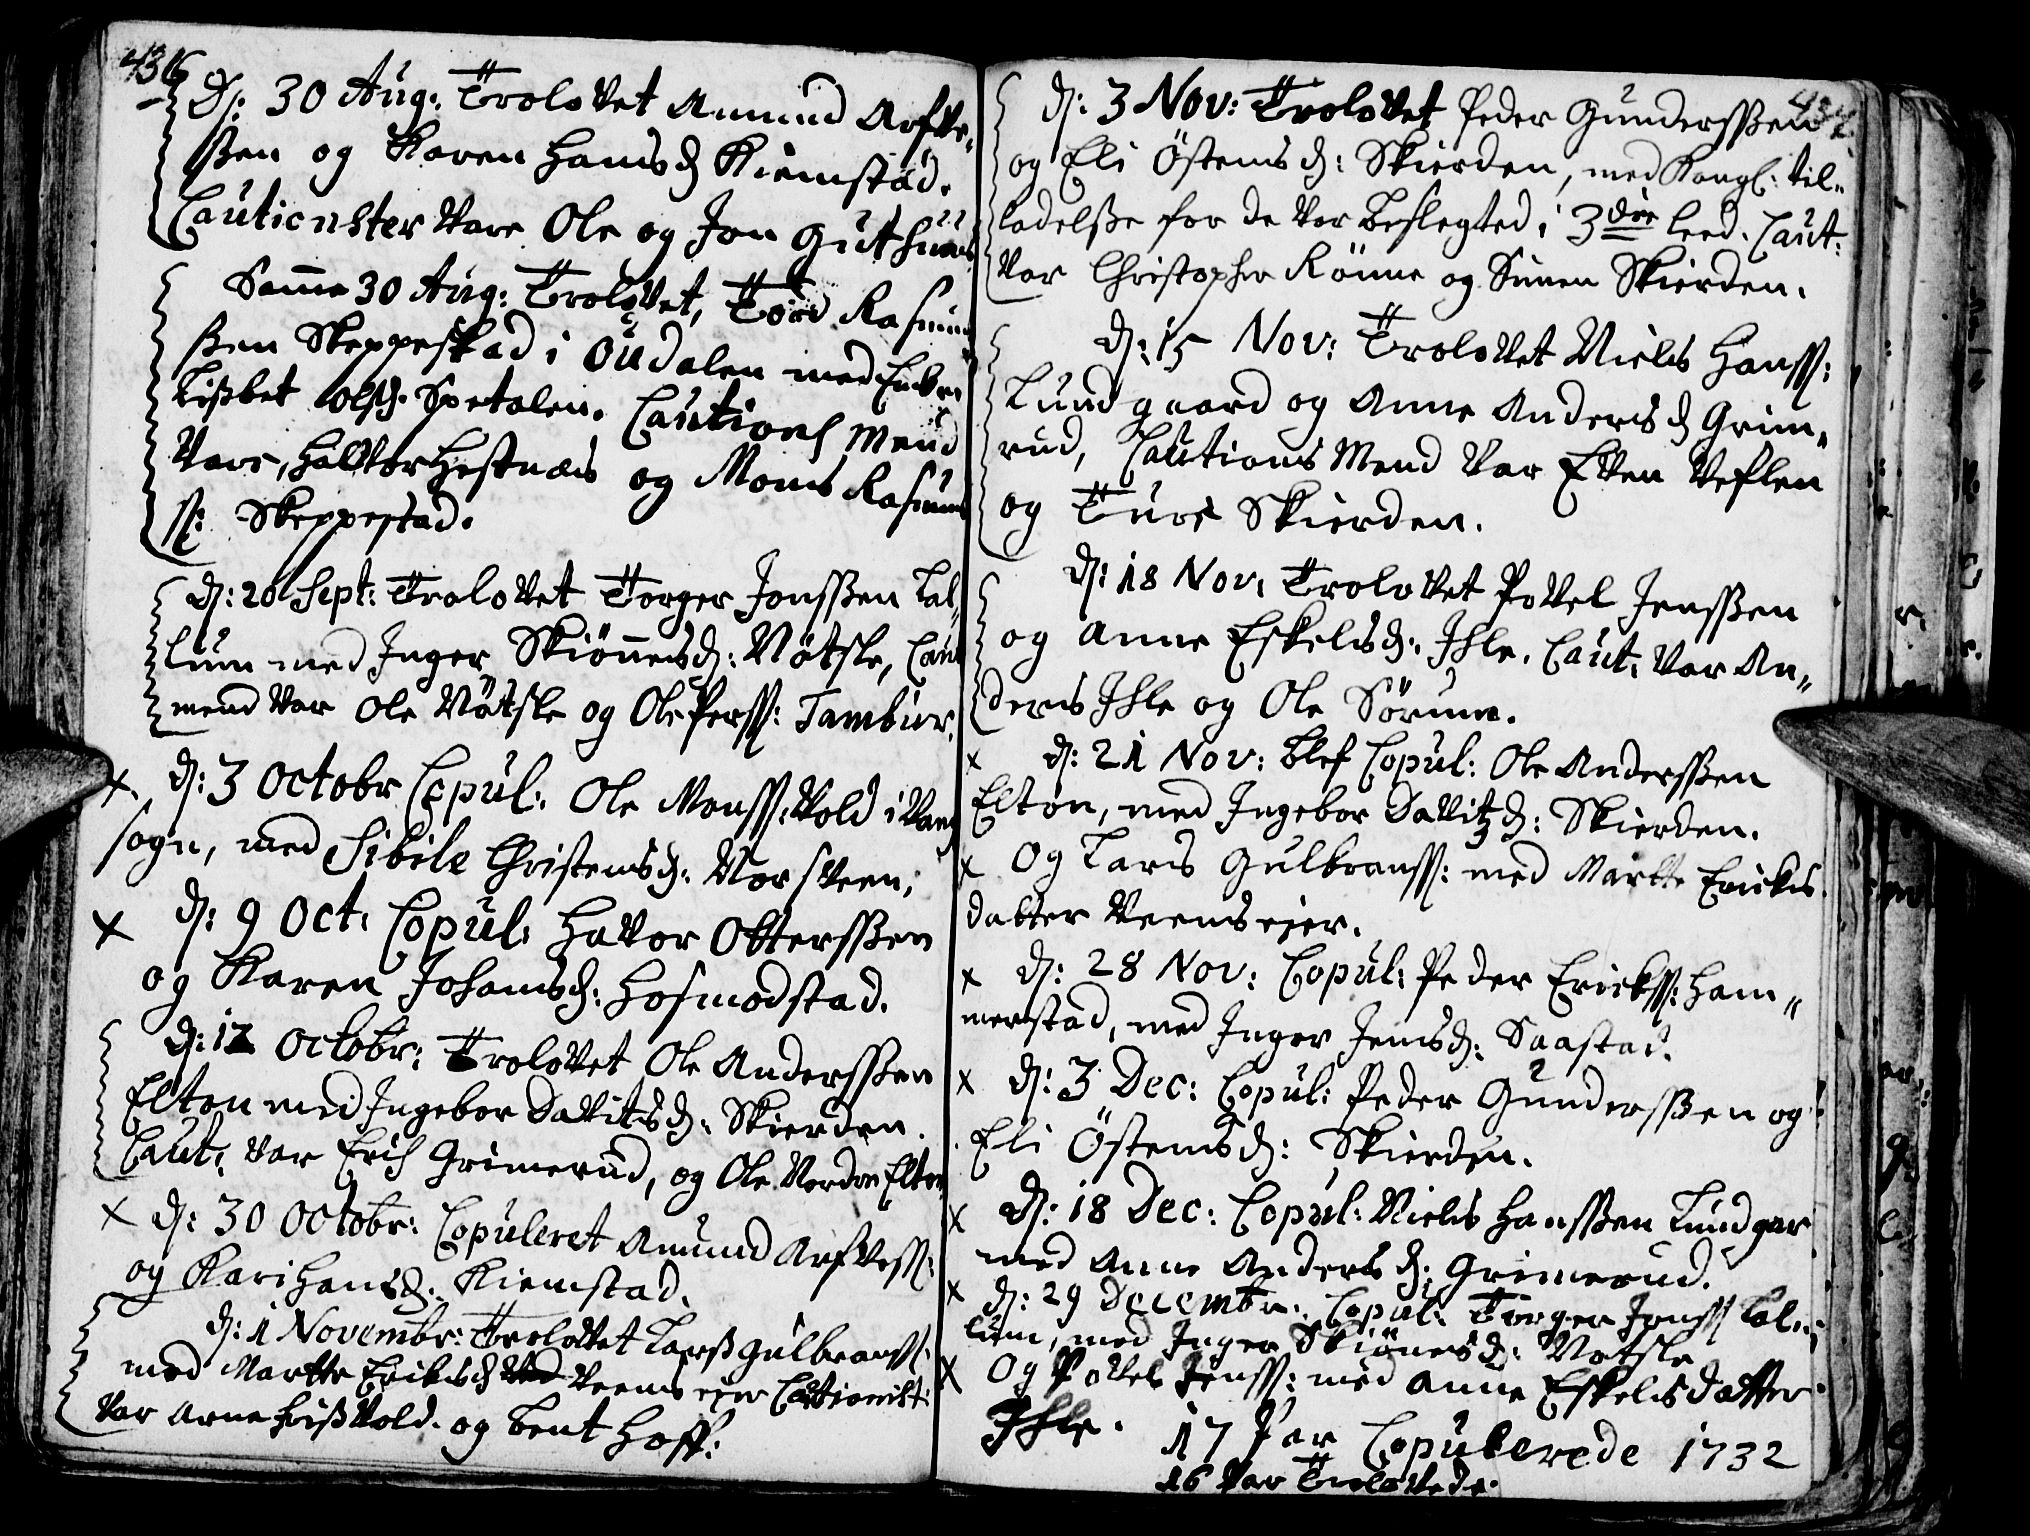 436
D: 30 Aug: Trolovet Amund Arfve-
ßen og Karen Hansd Kiemstad.
Cautionster vare Ole og Jon Guthuus
Samme 30 Aug: Trolovet, Tord Rasmus
ßen Skeppestad i Oudalen med Enken
Lisbet Olsd. Spetalen. Cautions mend
vare, Halvor Hestnæs og Mons Rasmus
ß: Skeppestad.
D: 20 Sept: Trolovet Torger Jonsßen Lal-
lum med Inger Skiönnesd: Nötsle, Caut
mend var Ole Nötsle og Ole Perss: Tambur.
x. D: 3 Octobr Copul: Ole Monss: Vold i Vang
sogn, med Sibile Christensd: Norsveen;
x D: 9 Oct: Copul: Havor Ottersßen
og Karen Johansd: Hofmodstad.
D: 12 Octobr: Trolovet Ole Andersßen
Elton med Ingebor Davitsd: Skierden.
Caut: var Erich Grimerud, og Ole Nordre Elton
x D: 30 Octobr: Copuleret Amund Arfvess:
og Kari Hansd: Kiemstad.
D: 1 Novembr: Trolovet Larß Gulbranss:
med Martte Ericksd Veens eier Cautionist:
var Arne Frißvold. og Bent Hoff:
D: 3 Nov: Trolovet Peder Gundersßen
og Eli Östensd: Skierden, med Kongl: til-
ladelße for de var beslegted i 3die leed. Caut:
var Christopher Rönne og Simen Skierden.
D: 15 Nov: Trolovet Niels Hanss:
Lundgaard og Anne Andersd Grim-
rud, Cautions Mend var Even Veflen
og Ture Skierden.
D: 18 Nov: Trolovet Povel Jensßen
og Anne Eskelsd: Ihle. Caut: var An-
ders Ihle og Ole Sörum.
x D: 21 Nov: blef Copul: Ole Andersßen
Elton, med Ingebor Davitzd: Skierden.
x Og Lars Gulbranss: med Martte Ericks
datter Veens eier.
x D: 28 Nov: Copul: Peder Ericks: Ham-
merstad, med Inger Jensd: Saastad.
x D: 3 Dec: Copul: Peder Gundersßen og
Eli Östensd: Skierden.
x D: 18 Dec: Copul: Niels Hansßen Lundgar
med Anne Andersd: Grimerud.
x D: 29 Decembr: Copul: Torger Jonss Lal-
lum, med Inger Skiönesd: Notsle
x Og Povel Jenss: med Anne Eskelsdatter
Ihle.
17 Par Copulerede 1732
16 Par Trolovede.